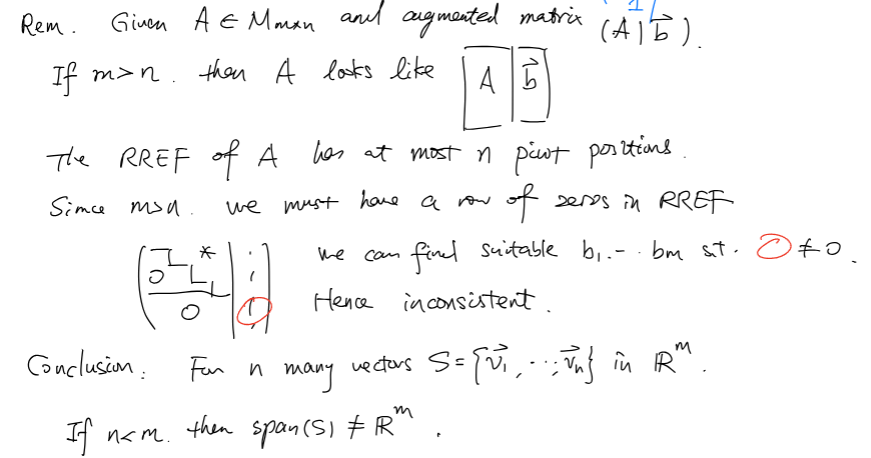 Rem. Given A ∈ Mm×n and augmented matrix (A | b⃗).
If m>n. then A looks like [A | b⃗]
The RREF of A has at most n pivot positions.
Since m>n. we must have a row of zeros in RREF
0 * 0 we can find suitable b1, ... bm s.t. ○ ≠ 0.
Hence inconsistent.
Conclusion: For n many vectors S = {v⃗1, ..., v⃗n} in ℝ^m.
If n<m. then span(S) ≠ ℝ^m.